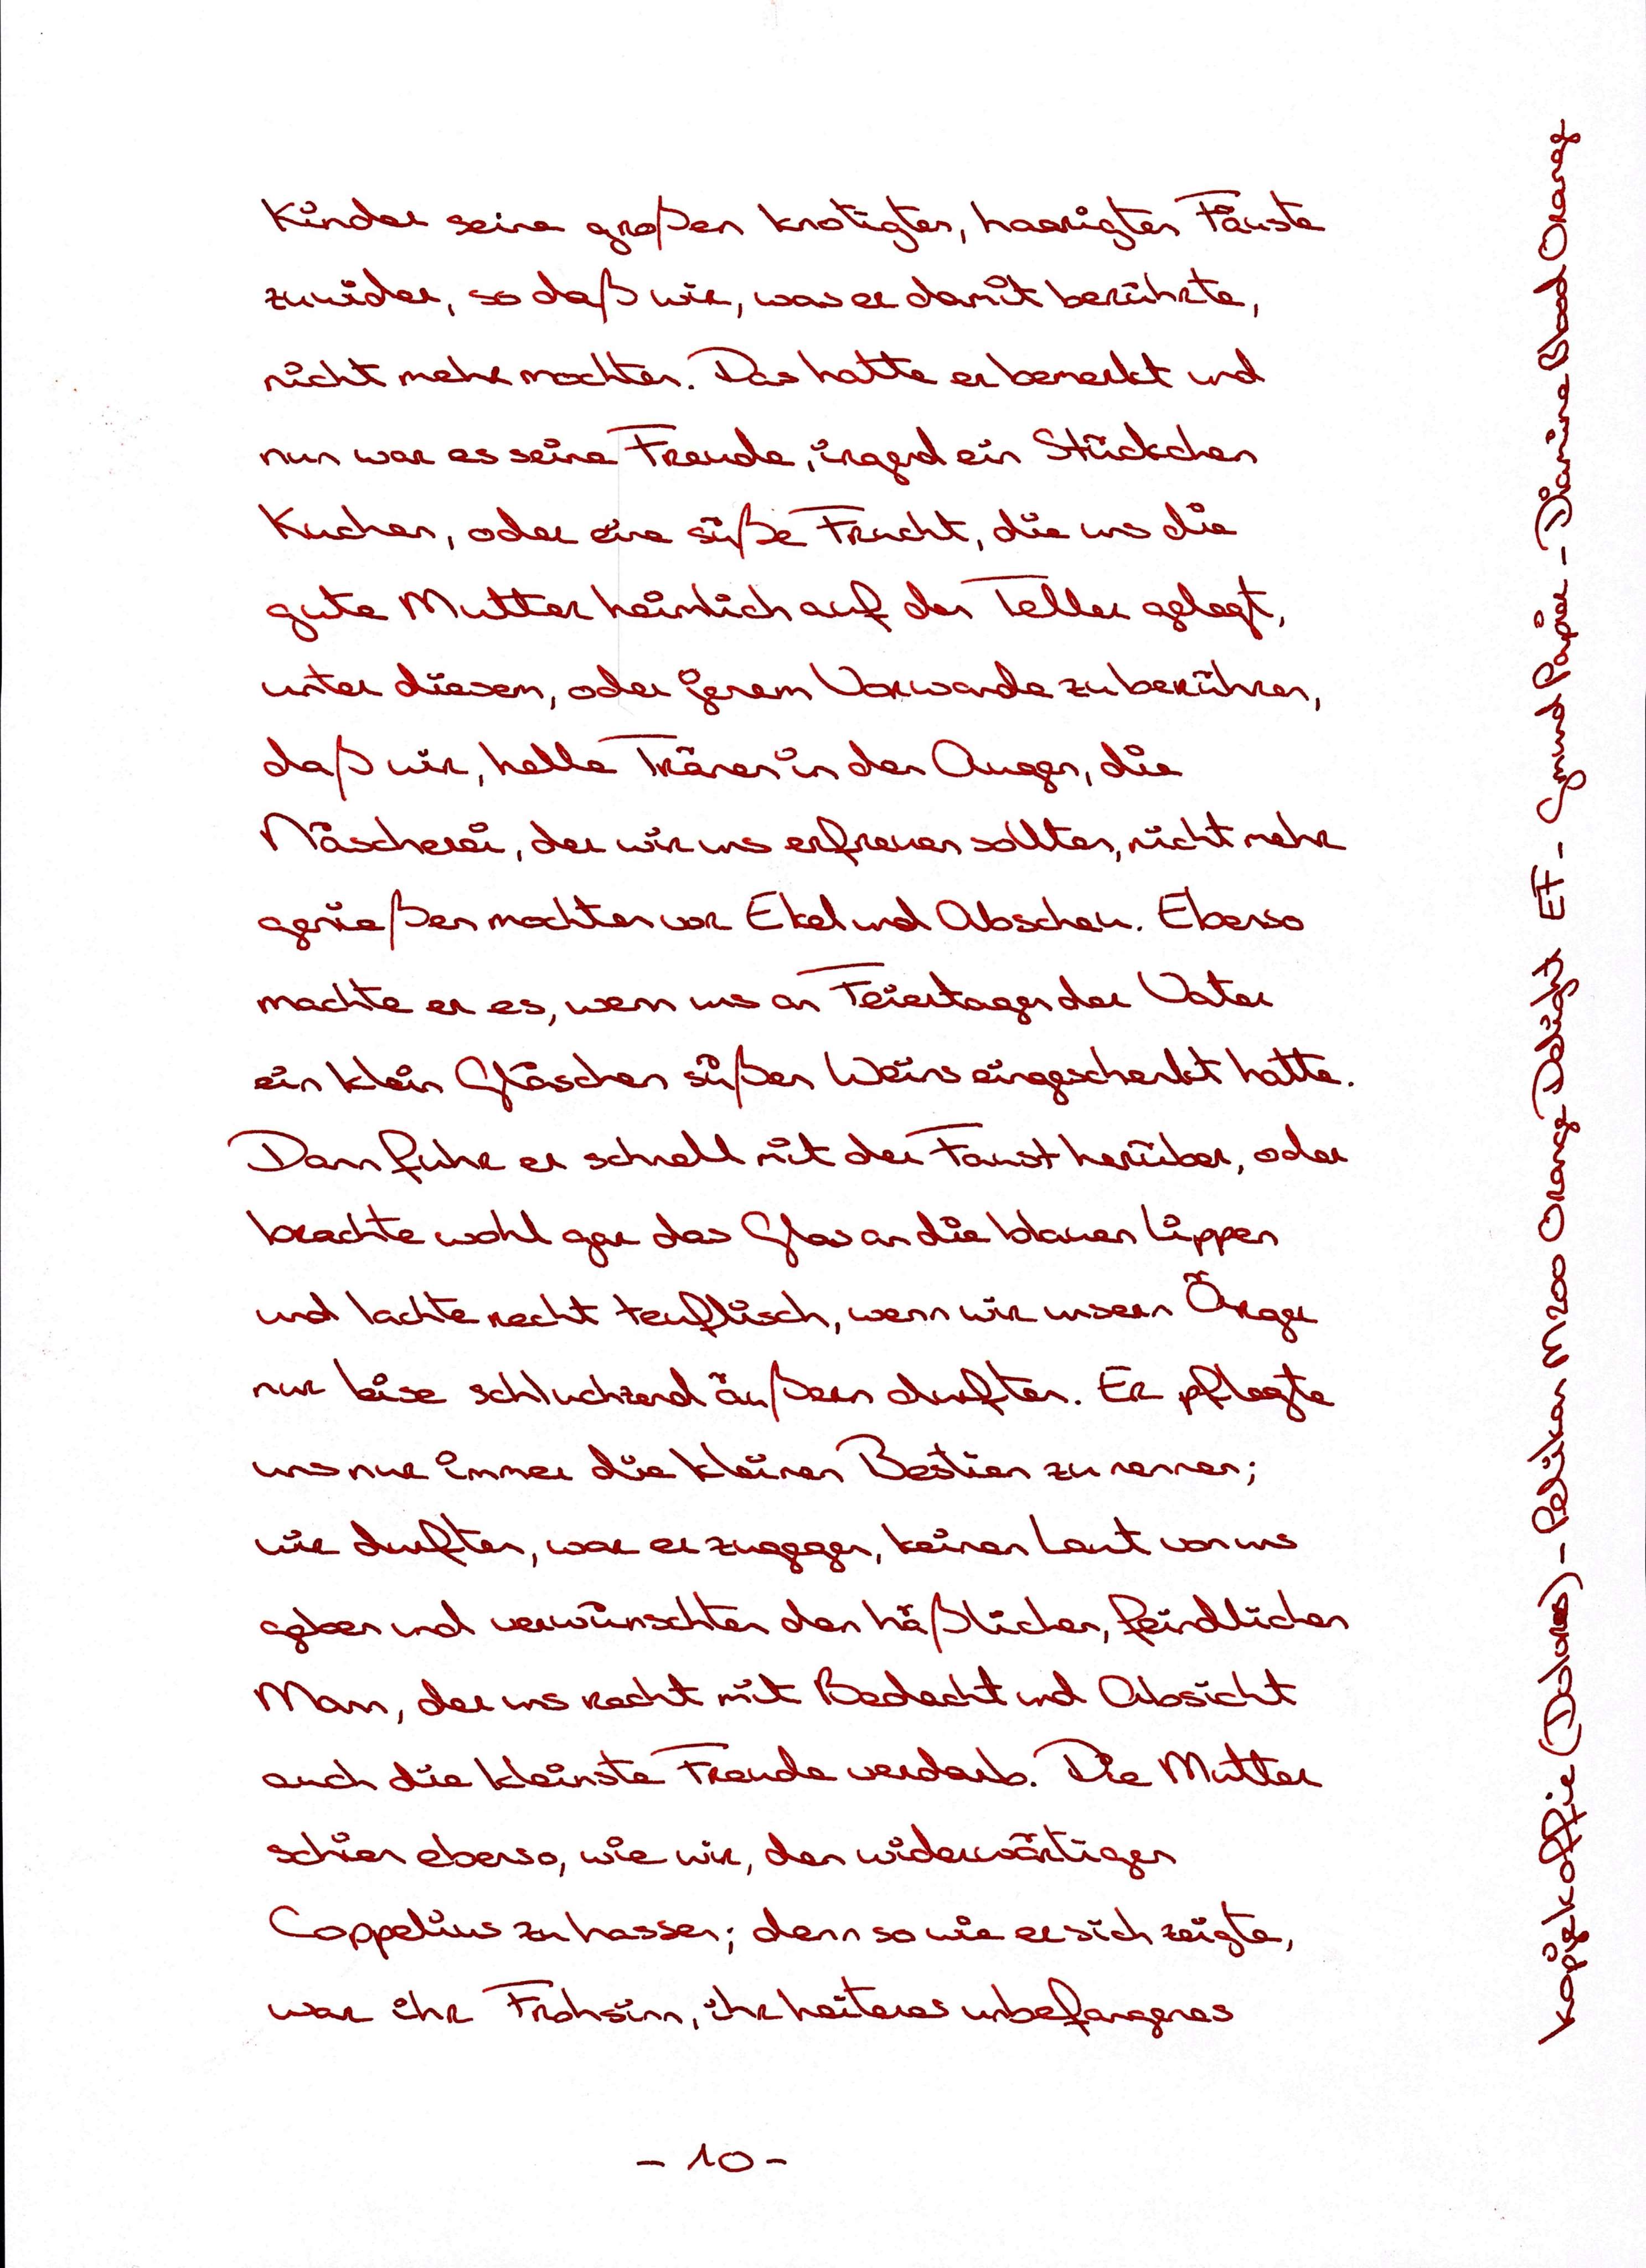 Kinder seine großen knotigten, haarigten Fäuste
zuwider, so daß wir, was er damit berührte,
nicht mehr mochten. Das hatte er bemerkt und
nun war es seine Freude, irgend ein Stückchen
Kuchen, oder eine süße Frucht, die uns die
gute Mutter heimlich auf den Teller gelegt,
unter diesem, oder jenem Vorwande zu berühren,
daß wir, helle Tränen in den Augen, die
Näscherei, der wir uns erfreuen sollten, nicht mehr
genießen mochten vor Ekel und Abscheu. Ebenso
machte er es, wenn uns an Feiertagen der Vater
ein klein Gläschen süßen Weins eingeschenkt hatte.
Dann fuhr er schnell mit der Faust herüber, oder
brachte wohl gar das Glas an die blauen Lippen
und lachte recht teuflisch, wenn wir unsern Ärger
nur leise schluchzend äußern durften. Er pflegte
uns nur immer die kleinen Bestien zu nennen;
wir durften, war er zugegen, keinen Laut von uns
geben und verwünschten den häßlichen, feindlichen
Mann, der uns recht mit Bedacht und Absicht
auch die kleinste Freude verdarb. Die Mutter
schien ebenso, wie wir, den widerwärtigen
Coppelius zu hassen; denn so wie er sich zeigte,
war ihr Frohsinn, ihr heiteres unbefangenes
- 10 -
kopjekoffie (Dolores) - Pelikan M200 Orange Delight EF - Gmund Papier - Diamine Blood Orange